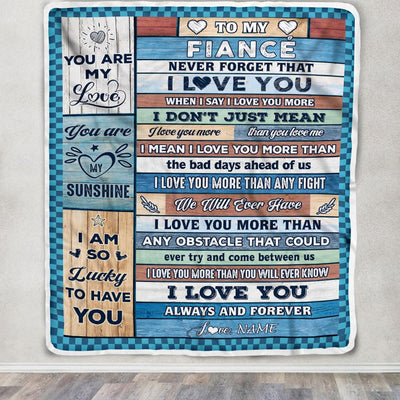 YOU ARE
MY
Love
You are
MY
SUNSHINE
I AM
SO
Lucky
TO HAVE
YOU
TO MY
FIANCÉ
NEVER FORGET THAT
I LOVE YOU
WHEN I SAY I LOVE YOU MORE
I DON'T JUST MEAN
I love you more than you love me
I MEAN I LOVE YOU MORE THAN
the bad days ahead of us
I LOVE YOU MORE THAN ANY FIGHT
We Will Ever Have
I LOVE YOU MORE THAN
ANY OBSTACLE THAT COULD
ever try and come between us
I LOVE YOU MORE THAN YOU WILL EVER KNOW
I LOVE YOU
ALWAYS AND FOREVER
Love, NAME